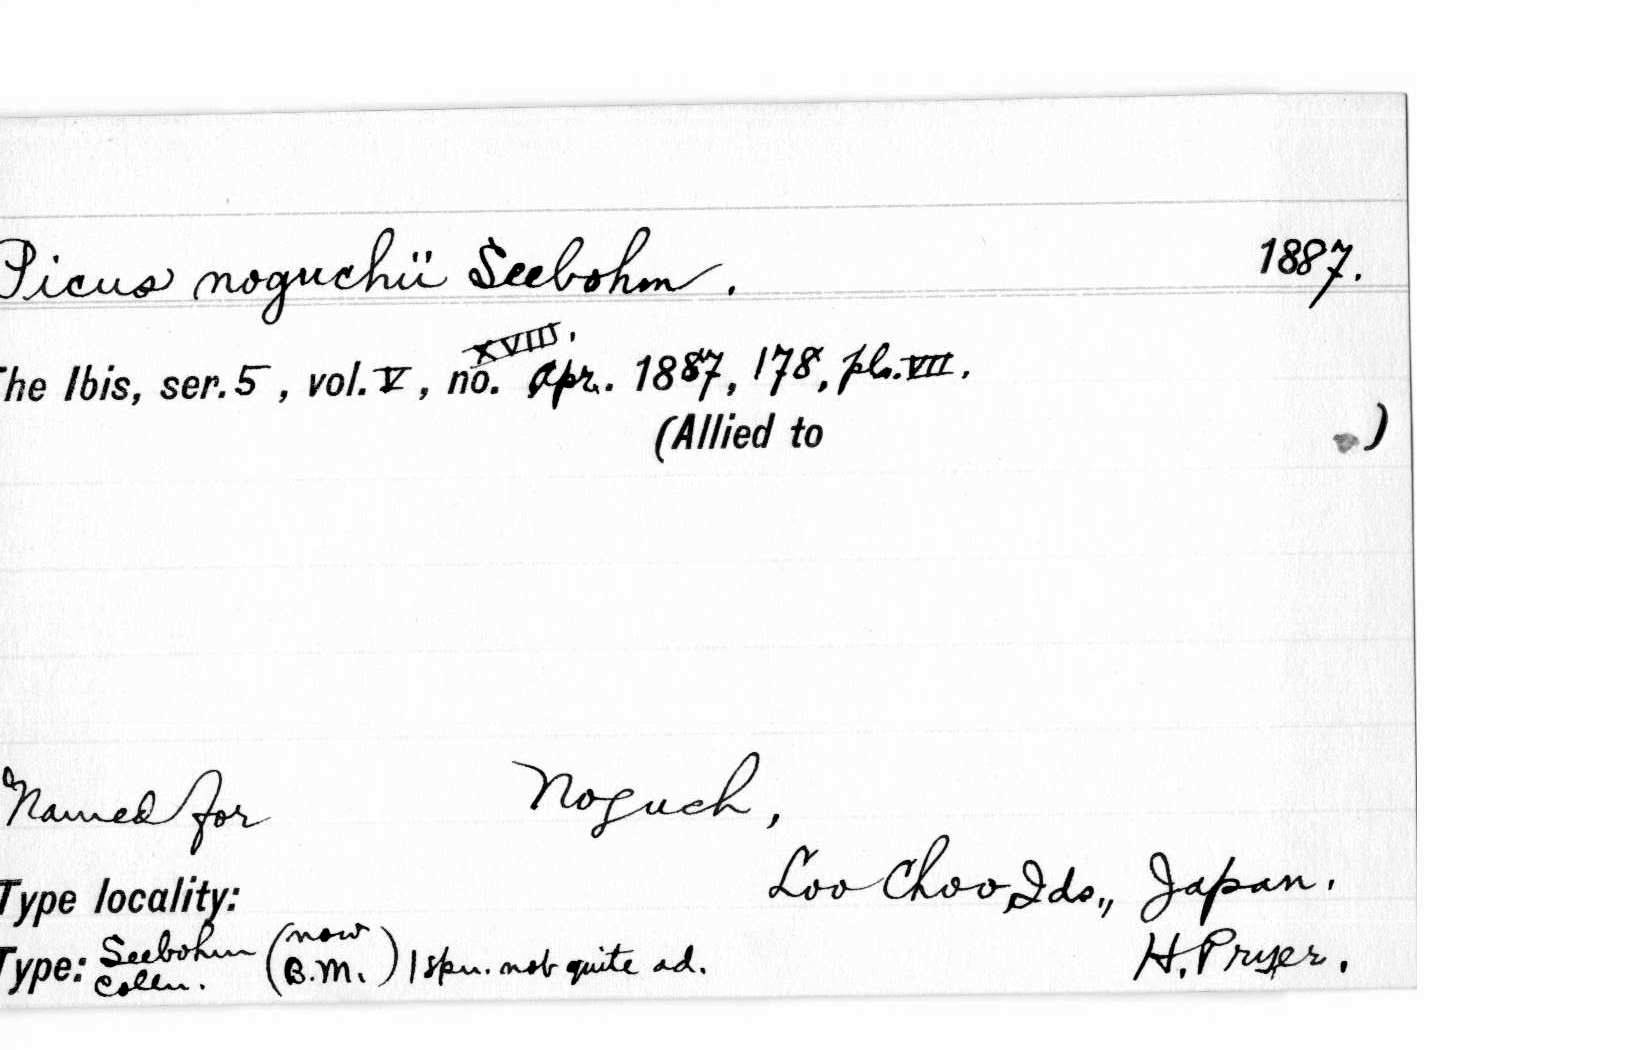 Picus noguchii Seebohm. 1887.
The Ibis, ser. 5, vol. V, no. XVIII. Apr. 1887, 178, pl. VII.
(Allied to .)
Named for Noguch,
Type locality: Loo Choo Ids., Japan.
Type: Seebohm Colln. (now B.M.) 1 spn. not quite ad. H. Pryer.